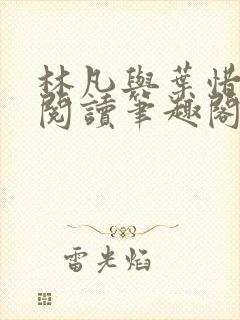 林凡與葉惜
閱讀筆趣閣
雷光焰